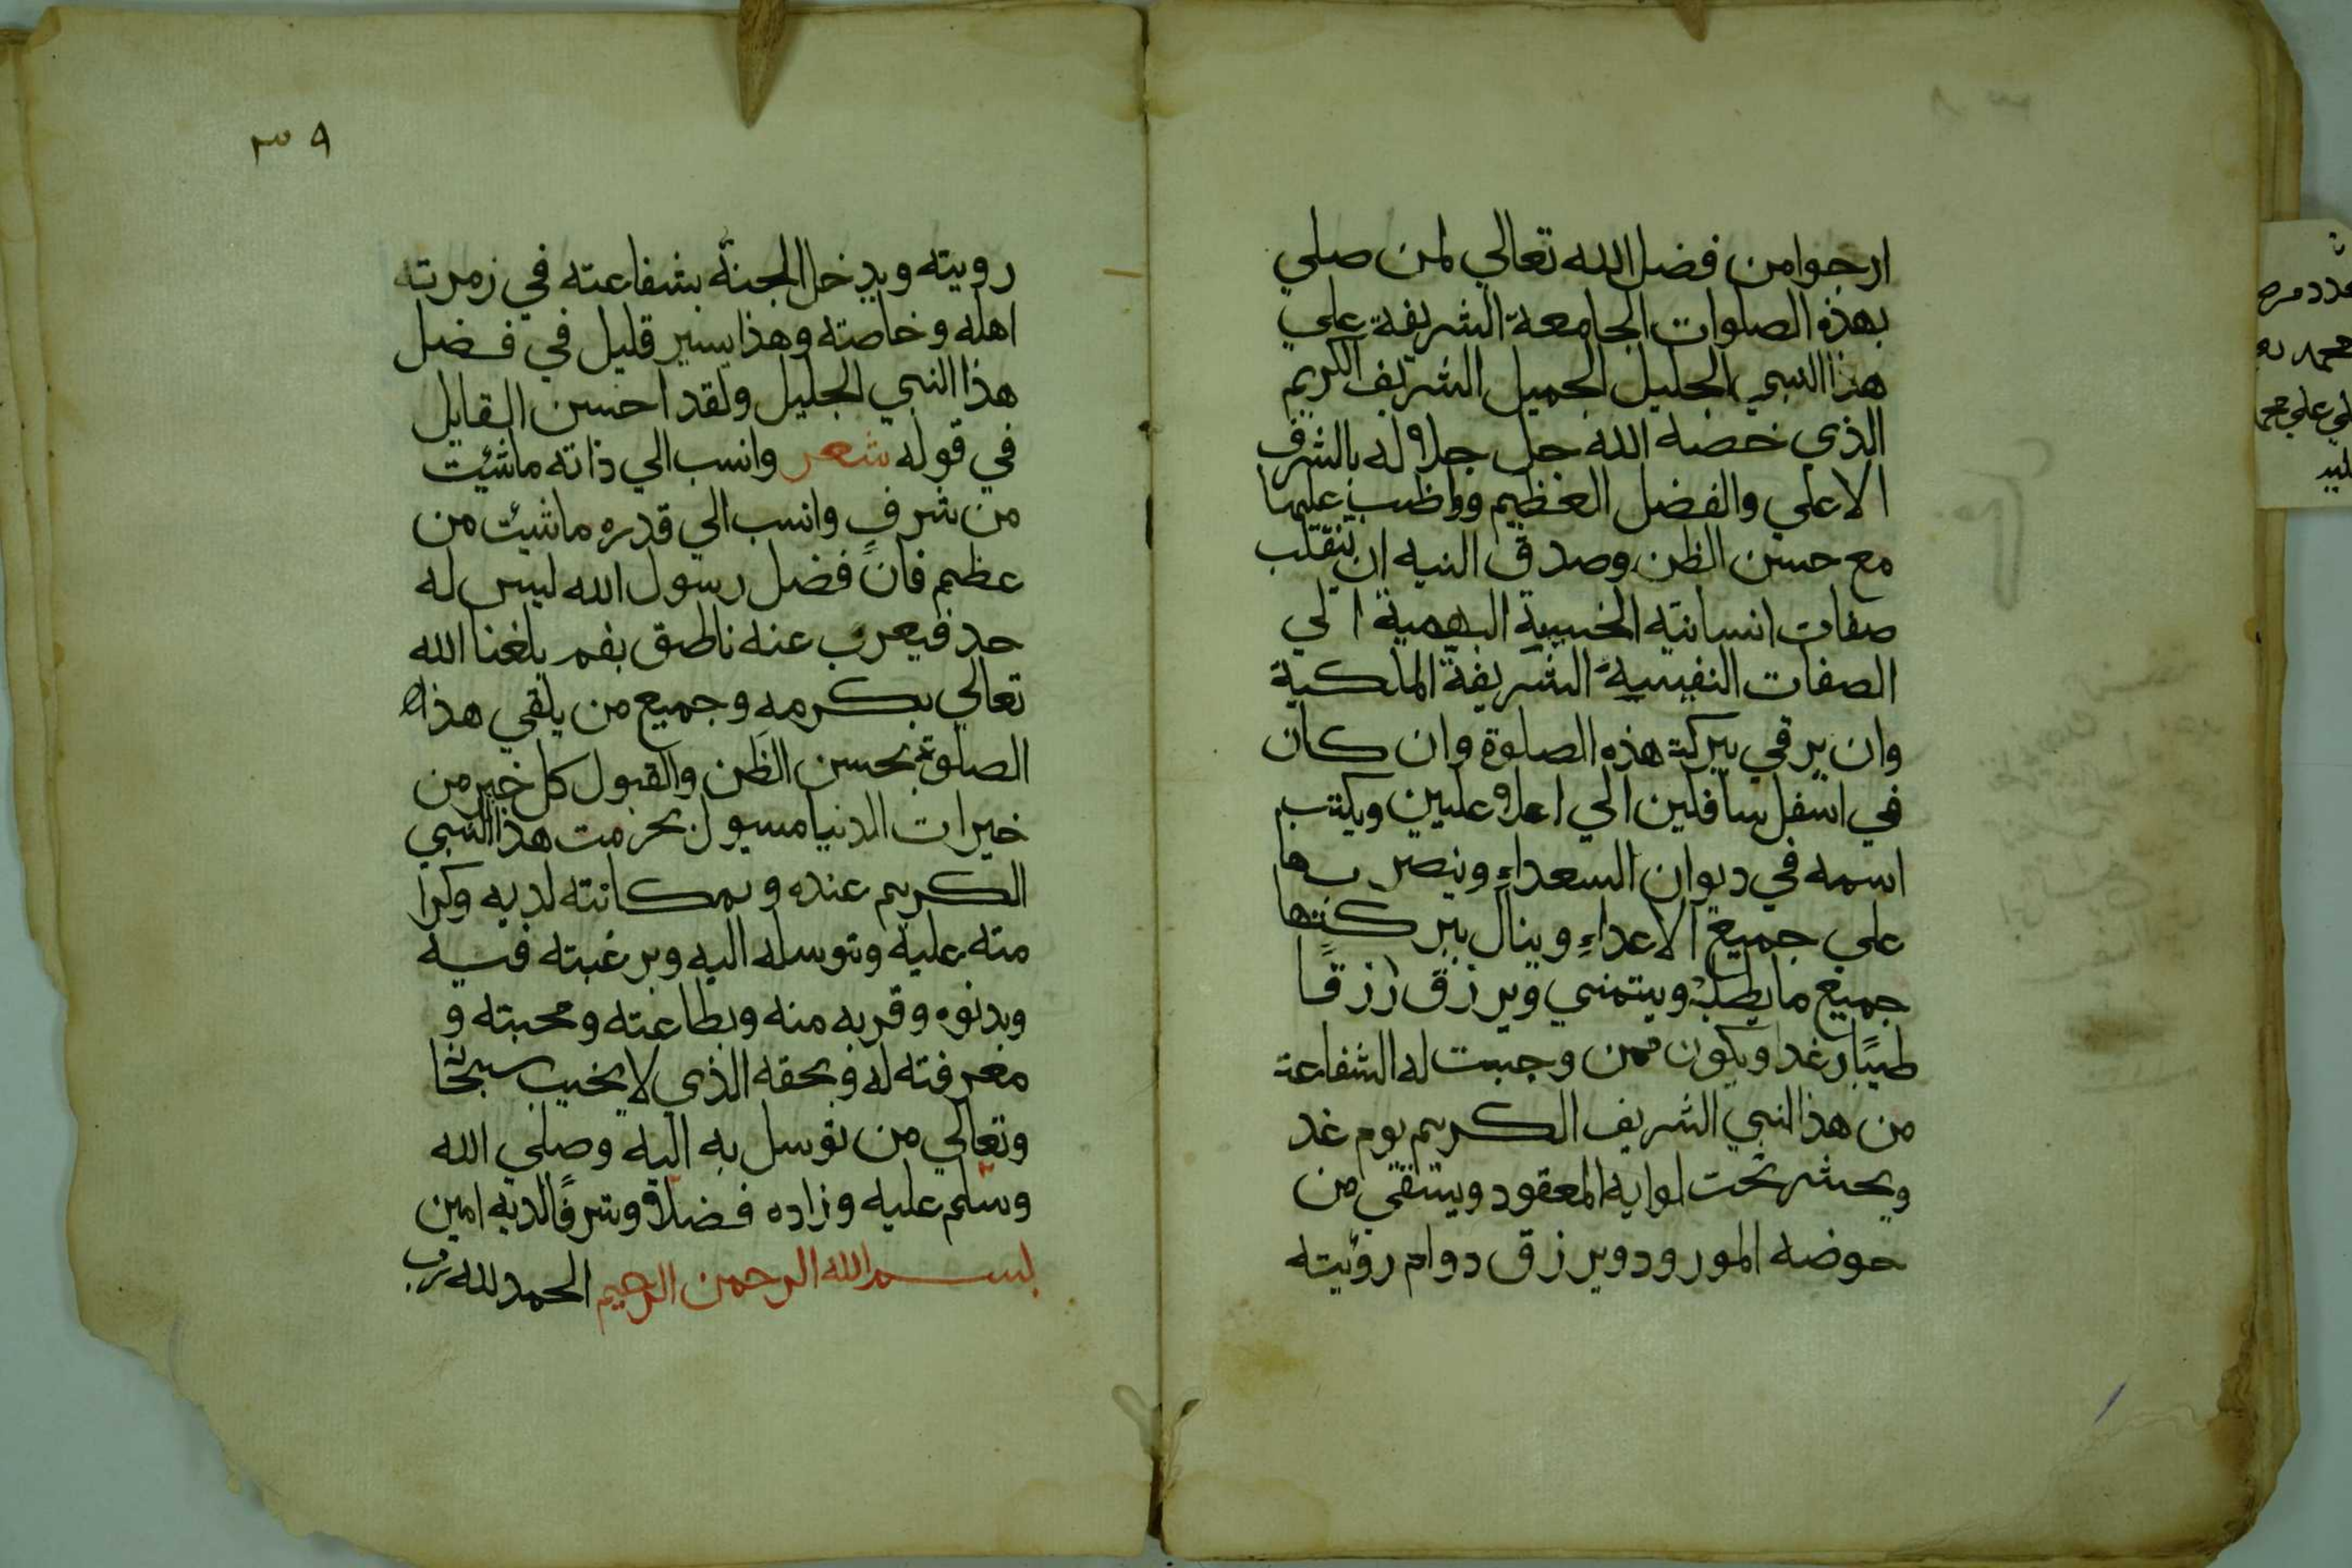 ارجوا من فضل الله تعالي لمن صلي
بهذه الصلوات الجامعة الشريفة علي
هذا النبي الجليل الجميل الشريف الكريم
الذي خصه الله جل جلاله بالشرف
الاعلي والفضل العظيم وواظب عليها
مع حسن الظن وصدق النيه ان تنقلب
صفات انسانيته الخسيسة البهمية الي
الصفات النفيسية الشريفة الملكية
وان يرقي ببركة هذه الصلوة وان كان
في اسفل سافلين الي اعلا عليين ويكتب
اسمه في ديوان السعداء وينصر بها
علي جميع الاعداء وينال ببركتها
جميع ما يطلبه ويتمني ويرزق رزقا
طيبًا رغدا ويكون ممن وجبت له الشفاعة
من هذا النبي الشريف الكريم يوم غد
ويحشر تحت لوايه المعقود ويستقي من
حوضه المورود ويرزق دوام رؤيته
٣٩
رويته ويدخل الجنة بشفاعته في زمرته
اهله وخاصته وهذا يسير قليل في فضل
هذا النبي الجليل ولقد احسن القايل
في قوله شعر وانسب الي ذاته ما شئيت
من شرف وانسب الي قدره ما شئيت من
عظيم فان فضل رسول الله ليس له
حد فيعرب عنه ناطق بفم بلغنا الله
تعالي بكرمه وجميع من يلقي هذه
الصلوة بحسن الظن والقبول كل خير من
خيرات الدنيا مسيول بحرمت هذا النبي
الكريم عنده وبمكانته لديه وكرا
مته عليه وتوسله اليه وبرغبته فيه
وبدنوه وقربه منه وبطاعته ومحبته و
معرفته له وبحقه الذي لا يخيب سبحانه
وتعالي من توسل به اليه وصلي الله
وسلم عليه وزاده فضلا وشرفًا لديه امين
بسم الله الرحمن الرحيم الحمد لله رب